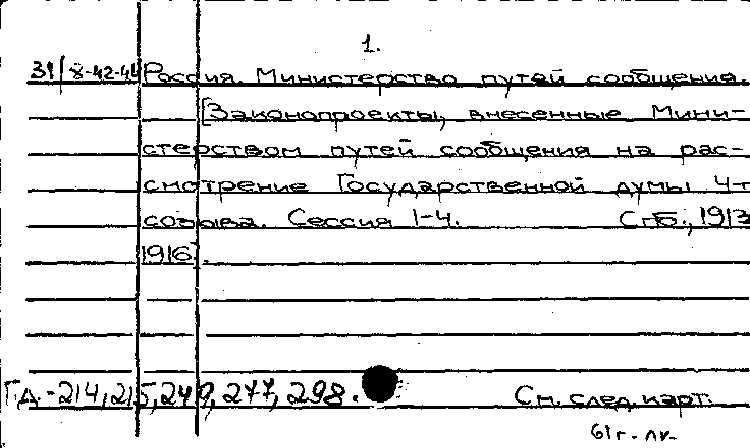 1.
31/8-42-44 Россия. Министерство путей сообщения.
[Законопроекты, внесенные Мини-
стерством путей сообщения на рас-
смотрение Государственной думы 4-г
созыва. Сессия 1-4. СПБ., 1913
1916].
Г.Д.-214, 215, 249, 277, 298.
См. след. карт.
61г.